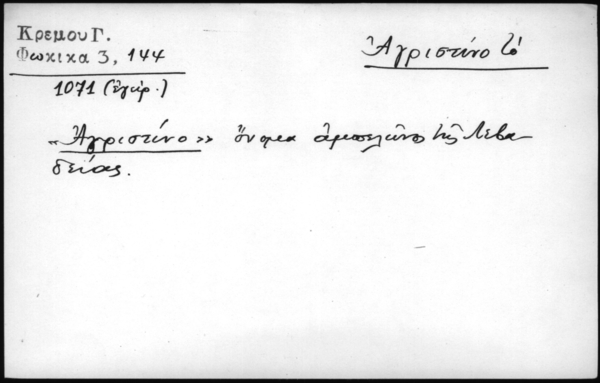 Κρεμου Γ.
Φωκικα 3, 144
Ἀγριστίνο τό
1071 (ἔγγρ.)
«Ἀγριστίνο» ὄνομα ἀμπελῶνος τῆς Λεβα
δείας.